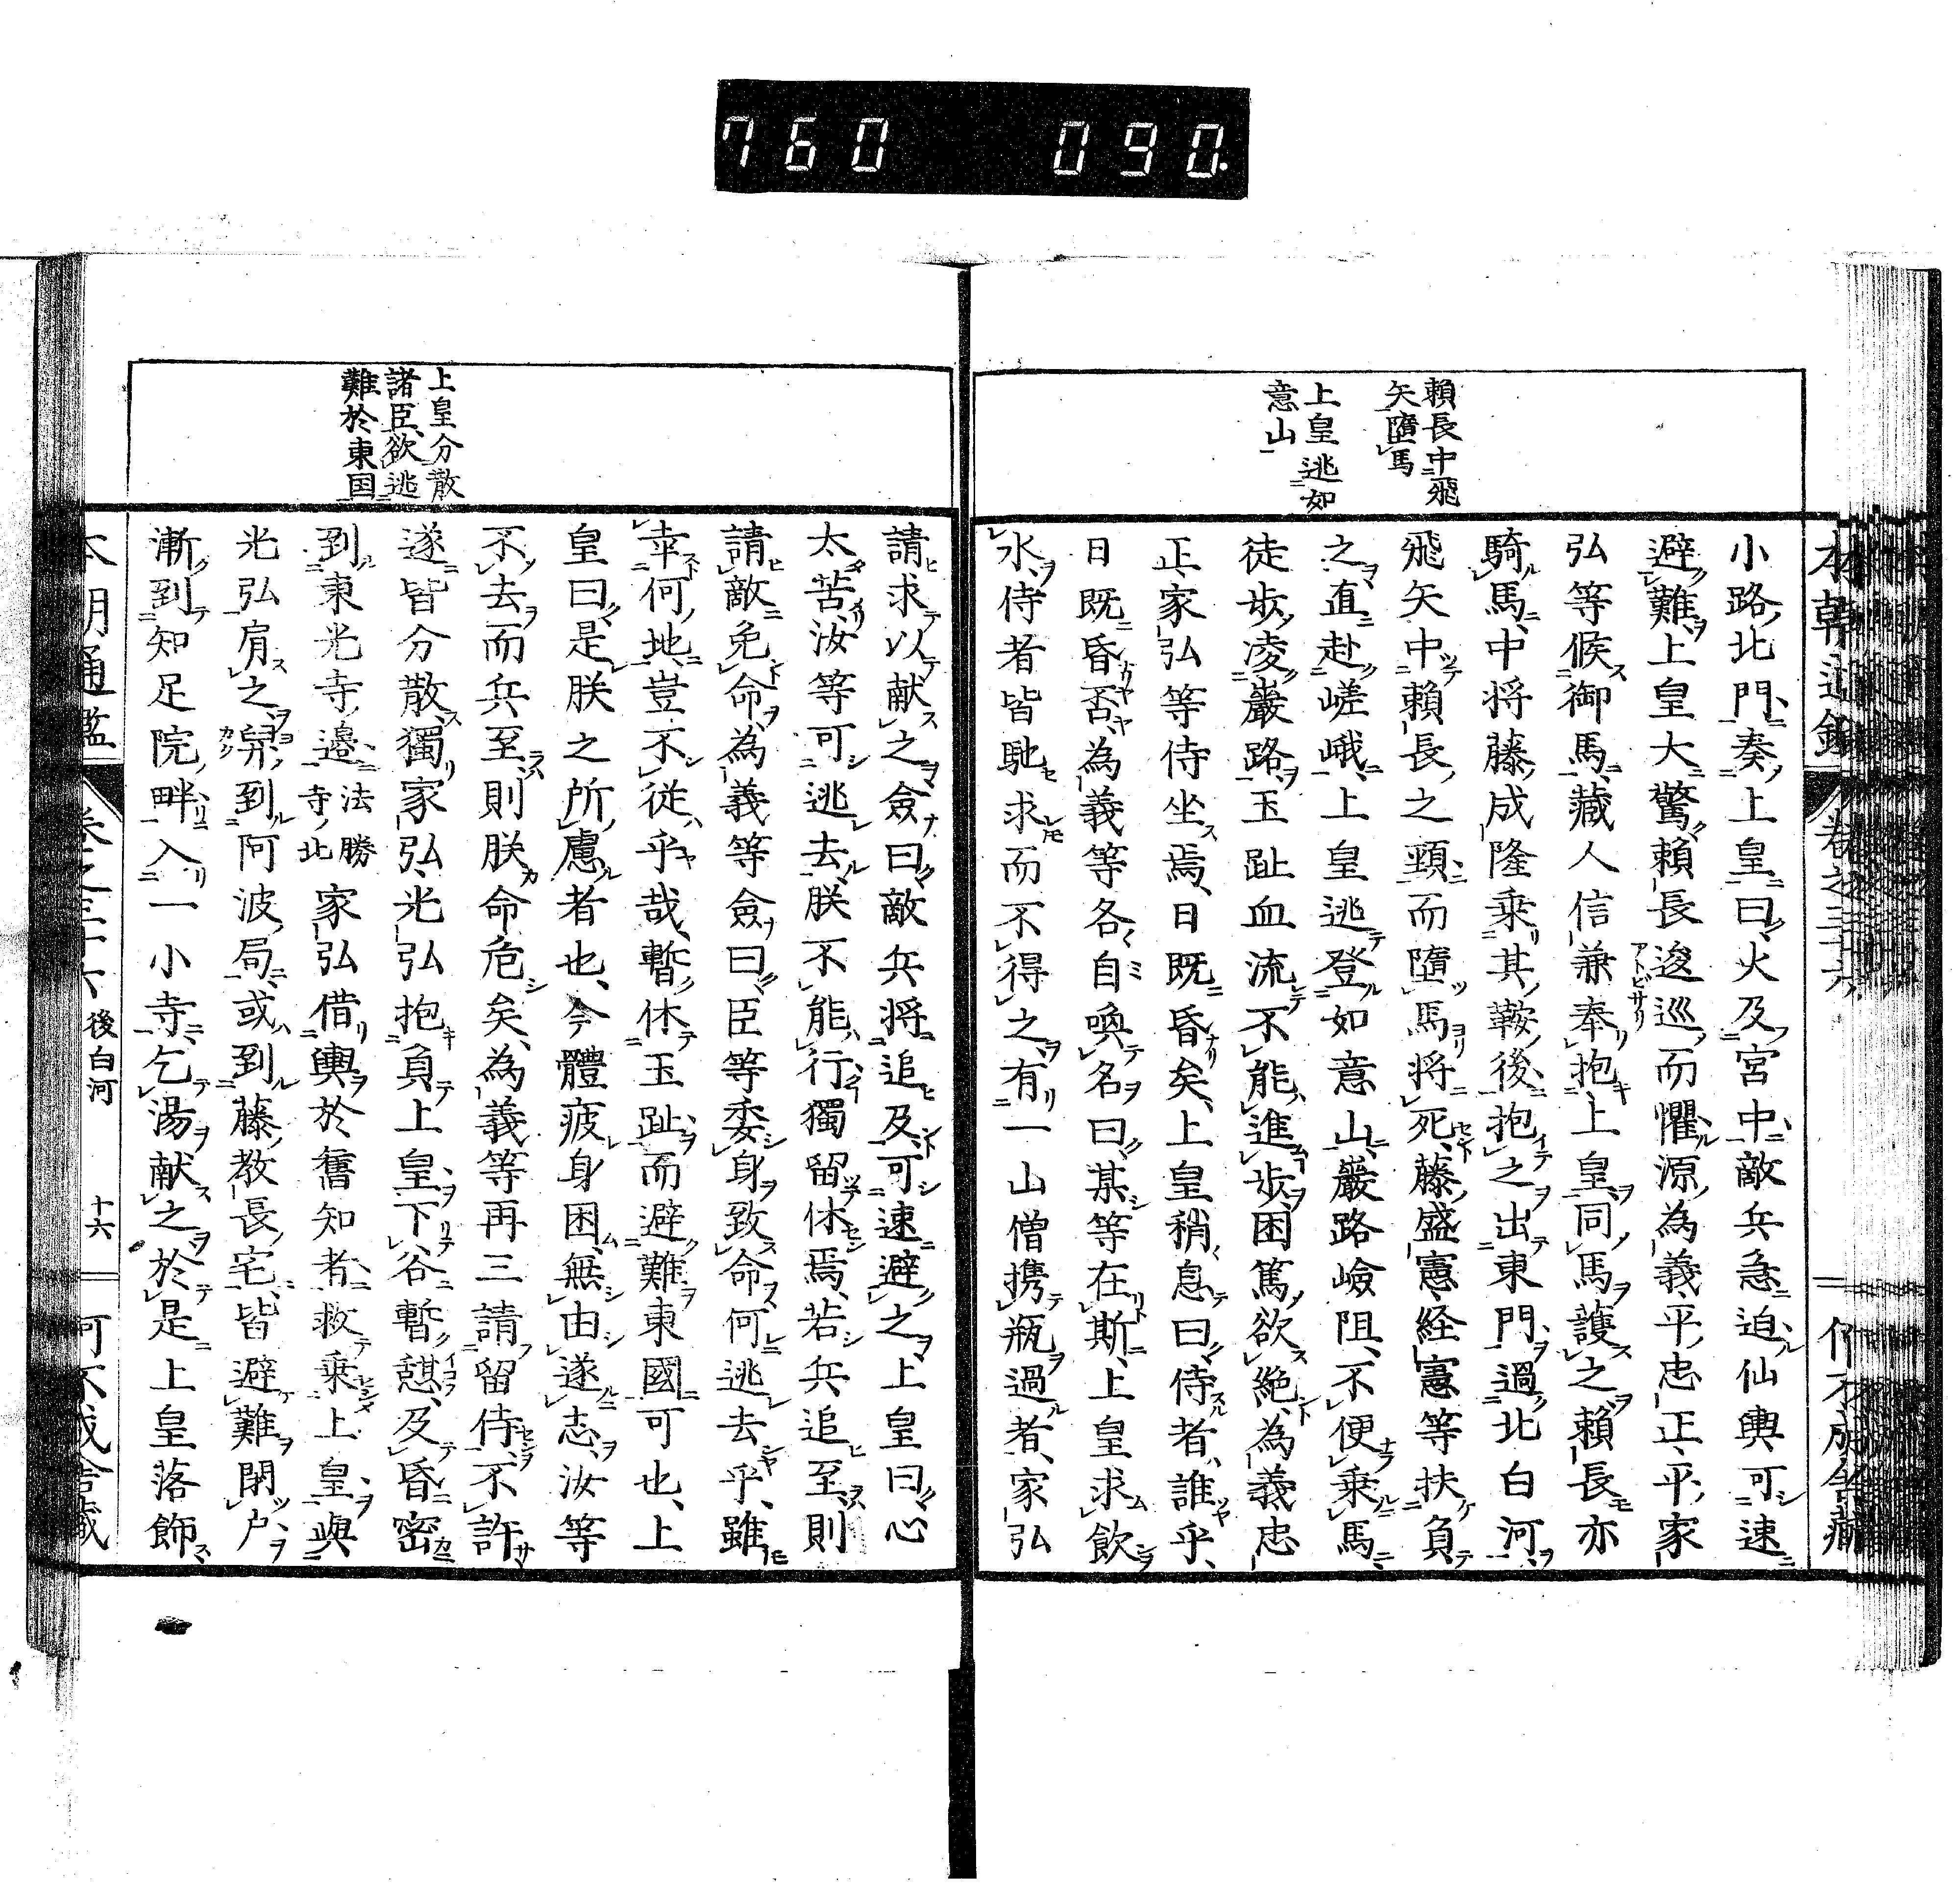 760 090.
頼長中飛
矢墮馬
上皇逃如
意山
小路北門奏上皇曰火及宮中敵兵急迫仙輿可速
避難上皇大驚頼長逡巡而懼源為義平忠正平家
弘等候御馬藏人信兼奉抱上皇同馬護之頼長亦
騎馬中将藤成隆乗其鞍後抱之出東門過北白河
飛矢中頼長之頸而墮馬将死藤盛憲経憲等扶負
之直赴嵯峨上皇逃登如意山巖路嶮阻不便乗馬
徒歩凌巖路玉趾血流不能進歩困篤欲絶為義忠
正家弘等侍坐焉日既昏矣上皇稍息曰侍者誰乎
日既昏否為義等各自喚名曰某等在斯上皇求飲
水侍者皆馳求而不得之有一山僧携瓶過者家弘
上皇分散
諸臣欲逃
難於東国
請求以献之僉曰敵兵将追及可速避之上皇曰心
太苦汝等可逃去朕不能行獨留休焉若兵追至則
請敵免命為義等僉曰臣等委身致命何逃去乎雖
幸何地豈不従乎哉暫休玉趾而避難東國可也上
皇曰是朕之所慮者也今體疲身困無由遂志汝等
不去而兵至則朕命危矣為義等再三請留侍不許
遂皆分散獨家弘光弘抱負上皇下谷暫憩及昏密
到東光寺邊法勝寺北家弘借輿於舊知者救乗上皇與
光弘肩之舁到阿波局或到藤教長宅皆避難閉户
漸到知足院畔入一小寺乞湯献之於是上皇落飾
後白河 十六